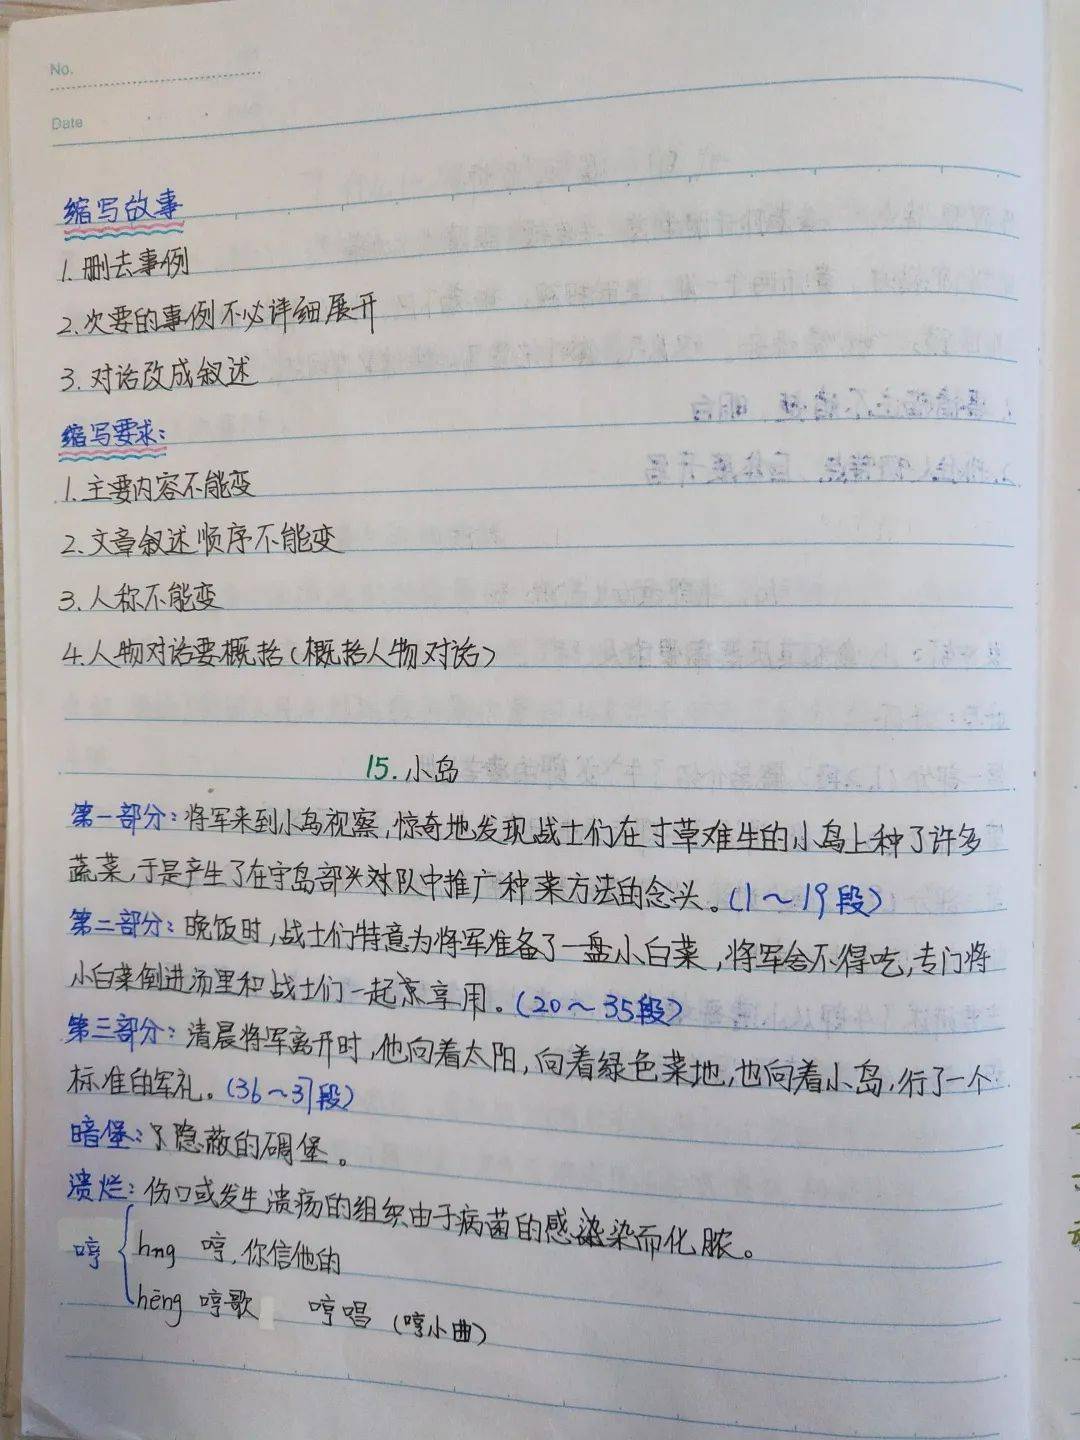 No.
Date
缩写故事
1. 删去事例
2. 次要的事例不必详细展开
3. 对话改成叙述
缩写要求:
1. 主要内容不能变
2. 文章叙述顺序不能变
3. 人称不能变
4. 人物对话要概括(概括人物对话)
15. 小岛
第一部分:将军来到小岛视察,惊奇地发现战士们在寸草难生的小岛上种了许多
蔬菜,于是产生了在守岛部队中推广种菜方法的念头。(1～19段)
第二部分:晚饭时,战士们特意为将军准备了一盘小白菜,将军舍不得吃,专门将
小白菜倒进汤里和战士们一起享用。(20～35段)
第三部分:清晨将军离开时,他向着太阳,向着绿色菜地,也向着小岛,行了一个
标准的军礼。(36～37段)
暗堡:隐蔽的碉堡。
溃烂:伤口或发生溃疡的组织由于病菌的感染而化脓。
哼
hng 哼,你信他的
hēng 哼歌 哼唱 (哼小曲)